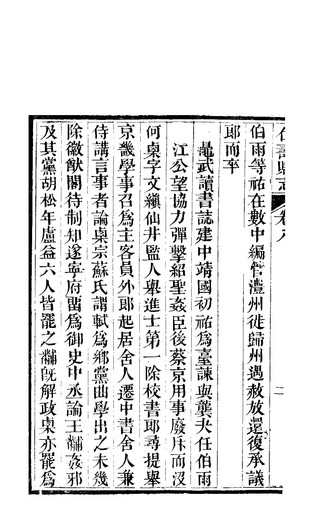 仁壽縣志 卷八
二
伯雨等祐在數中編管澧州徙歸州遇赦放還復承議
郎而卒
鼂武讀書誌建中靖國初祐爲臺諫與龔夬任伯雨
江公望協力彈擊紹聖姦臣後蔡京用事廢斥而沒
何㮚字文縝仙井監人舉進士第一除校書郎尋提舉
京畿學事召爲主客員外郎起居舍人遷中書舍人兼
侍講言事者論㮚宗蘇氏謂軾爲鄉黨曲學出之未幾
除徽猷閣待制知遂寧府留爲御史中丞論王黼姦邪
及其黨胡松年盧益六人皆罷之黼旣解政㮚亦罷爲